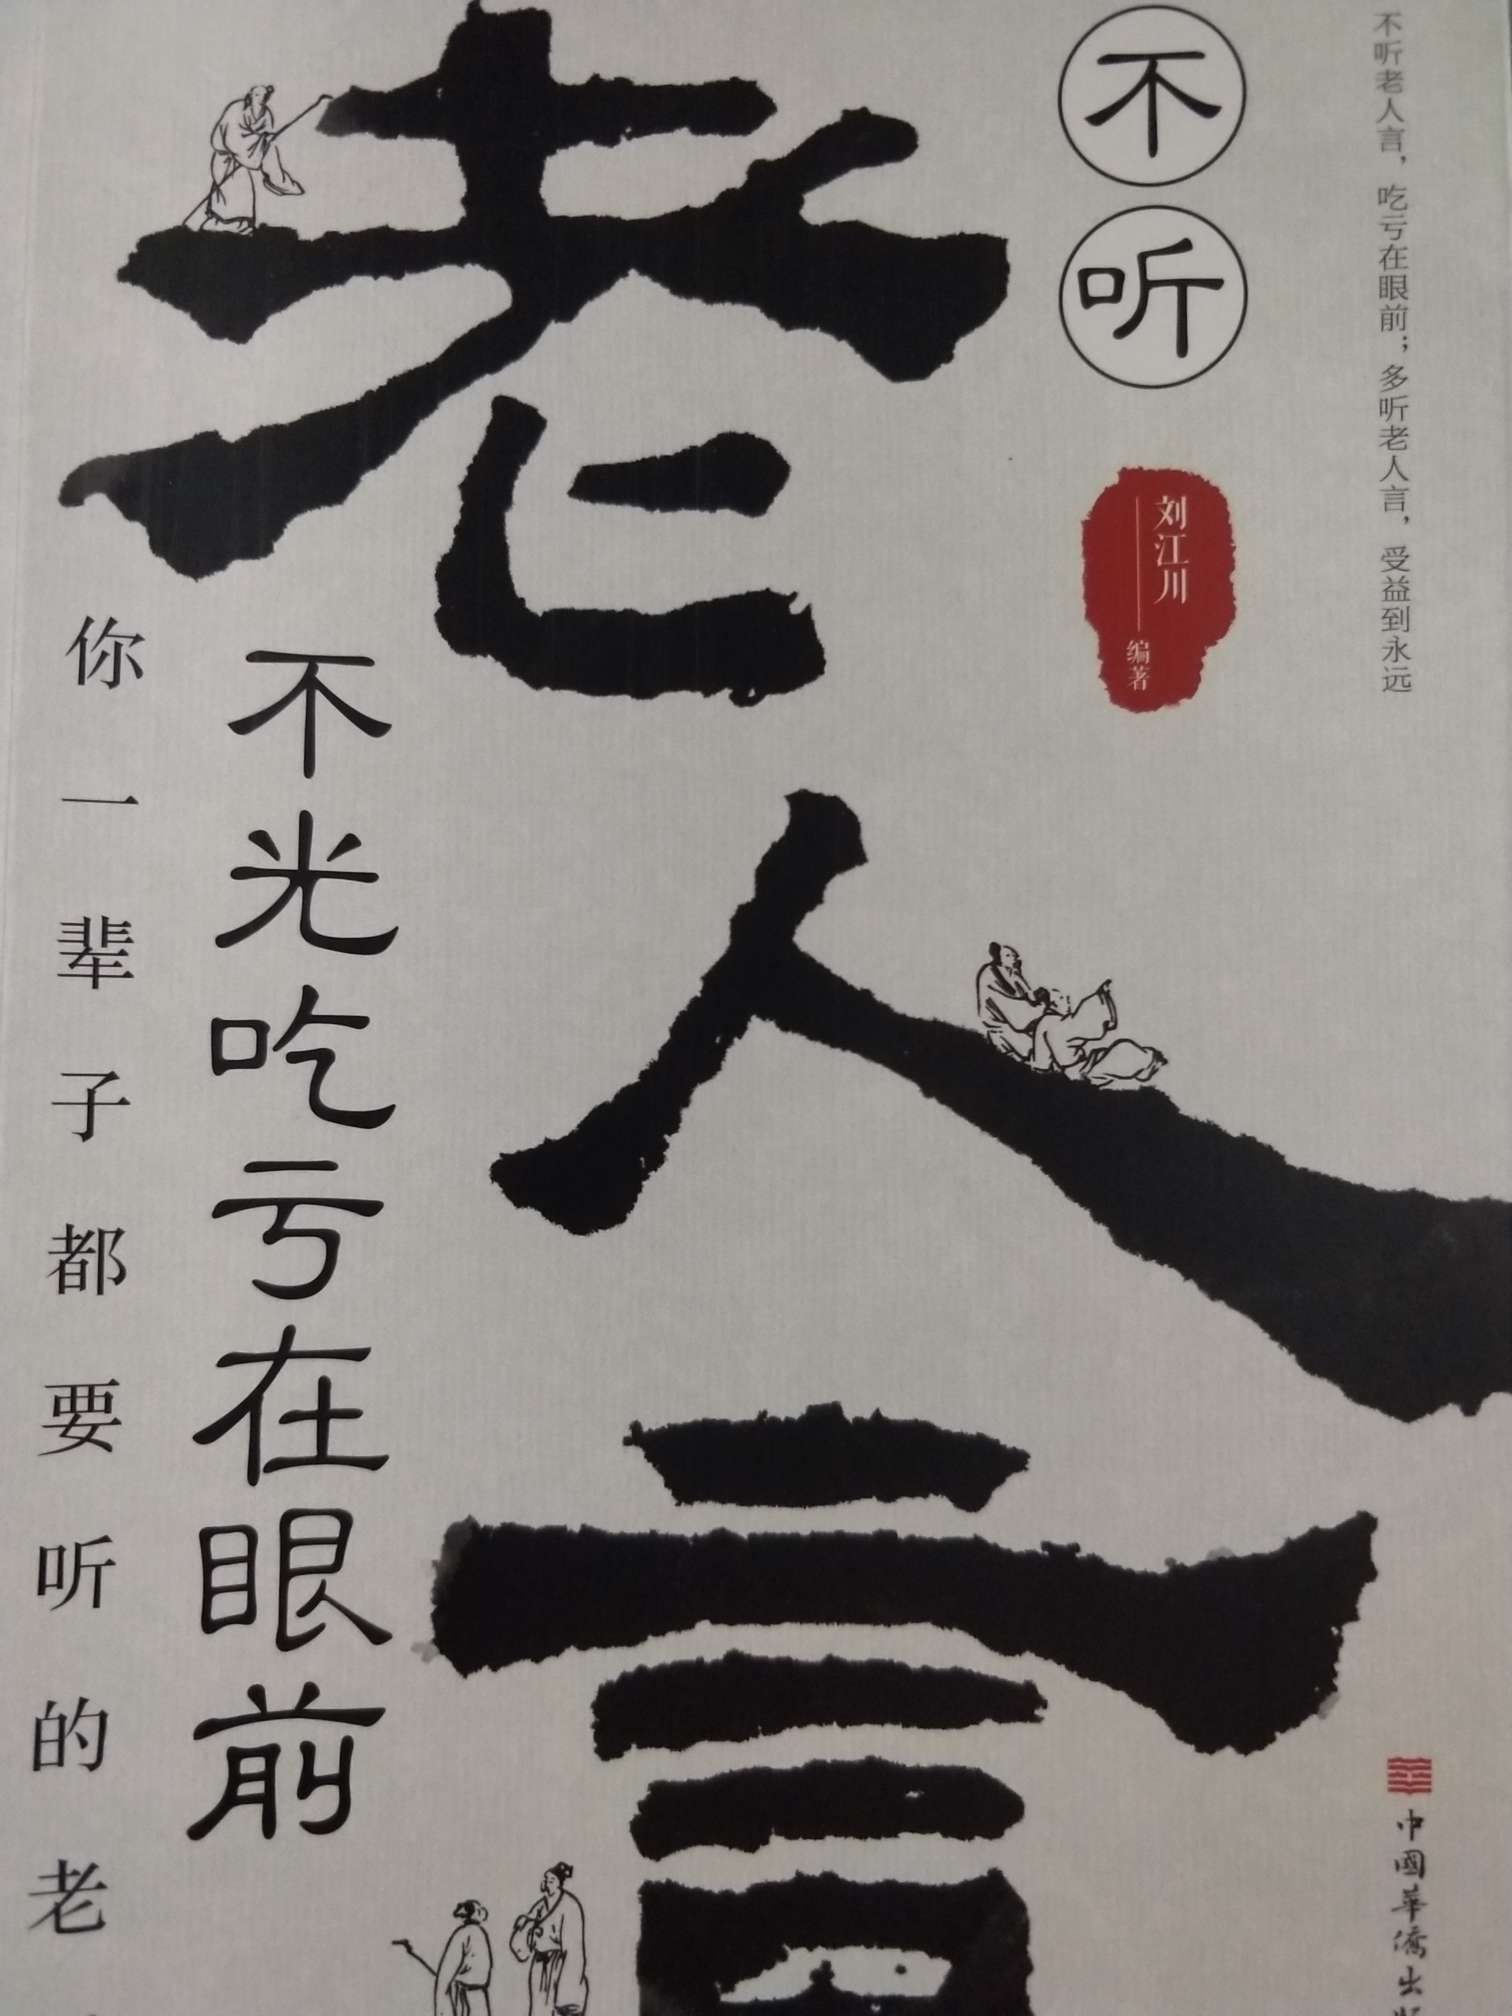 不听老人言，吃亏在眼前；多听老人言，受益到永远
不听
刘江川
编著
老人言
不光吃亏在眼前
你一辈子都要听的老
中國華僑出